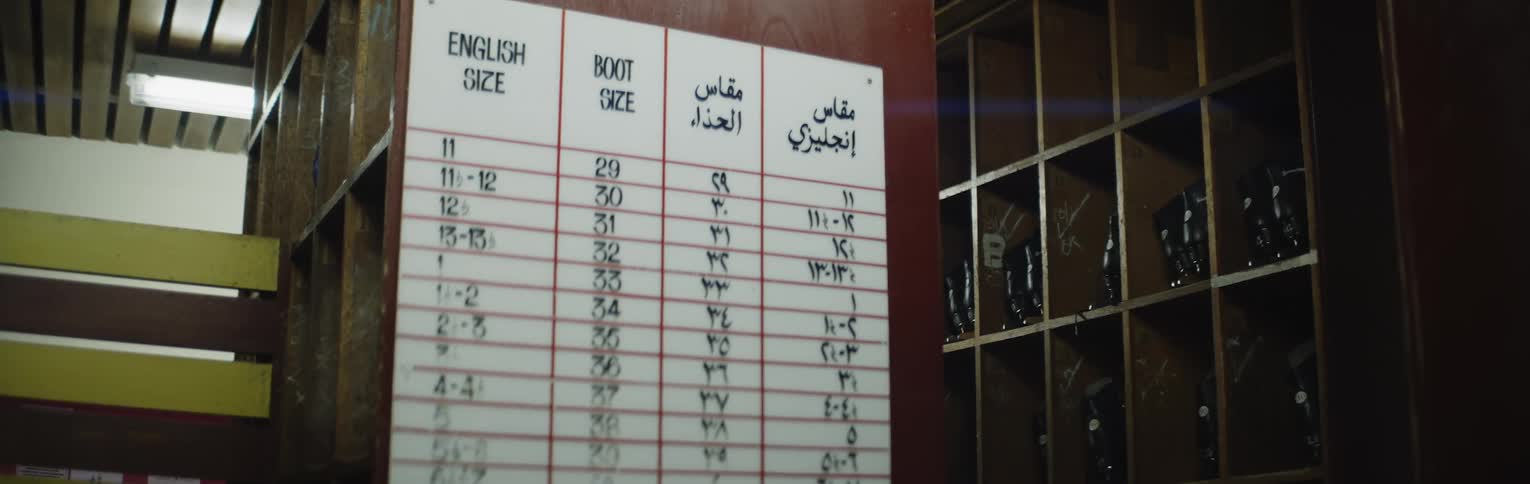 ENGLISH SIZE BOOT SIZE مقاس الحذاء مقاس إنجليزي
11 29 ٢٩ ١١
11½-12 30 ٣٠ ١١½-١٢
12½ 31 ٣١ ١٢½
13-13½ 32 ٣٢ ١٣-١٣½
1 33 ٣٣ ١
1½-2 34 ٣٤ ١½-٢
2½-3 35 ٣٥ ٢½-٣
3½ 36 ٣٦ ٣½
4-4½ 37 ٣٧ ٤-٤½
5 38 ٣٨ ٥
5½-6 39 ٣٩ ٥½-٦
B